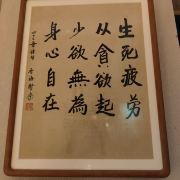 生死疲勞
從貪欲起
少欲無為
身心自在